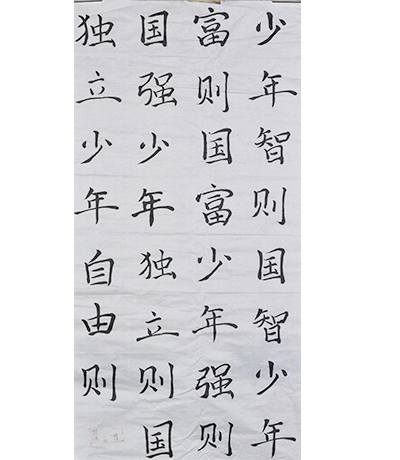 少年智则国智少年
富则国富少年强则
国强少年独立则国
独立少年自由则